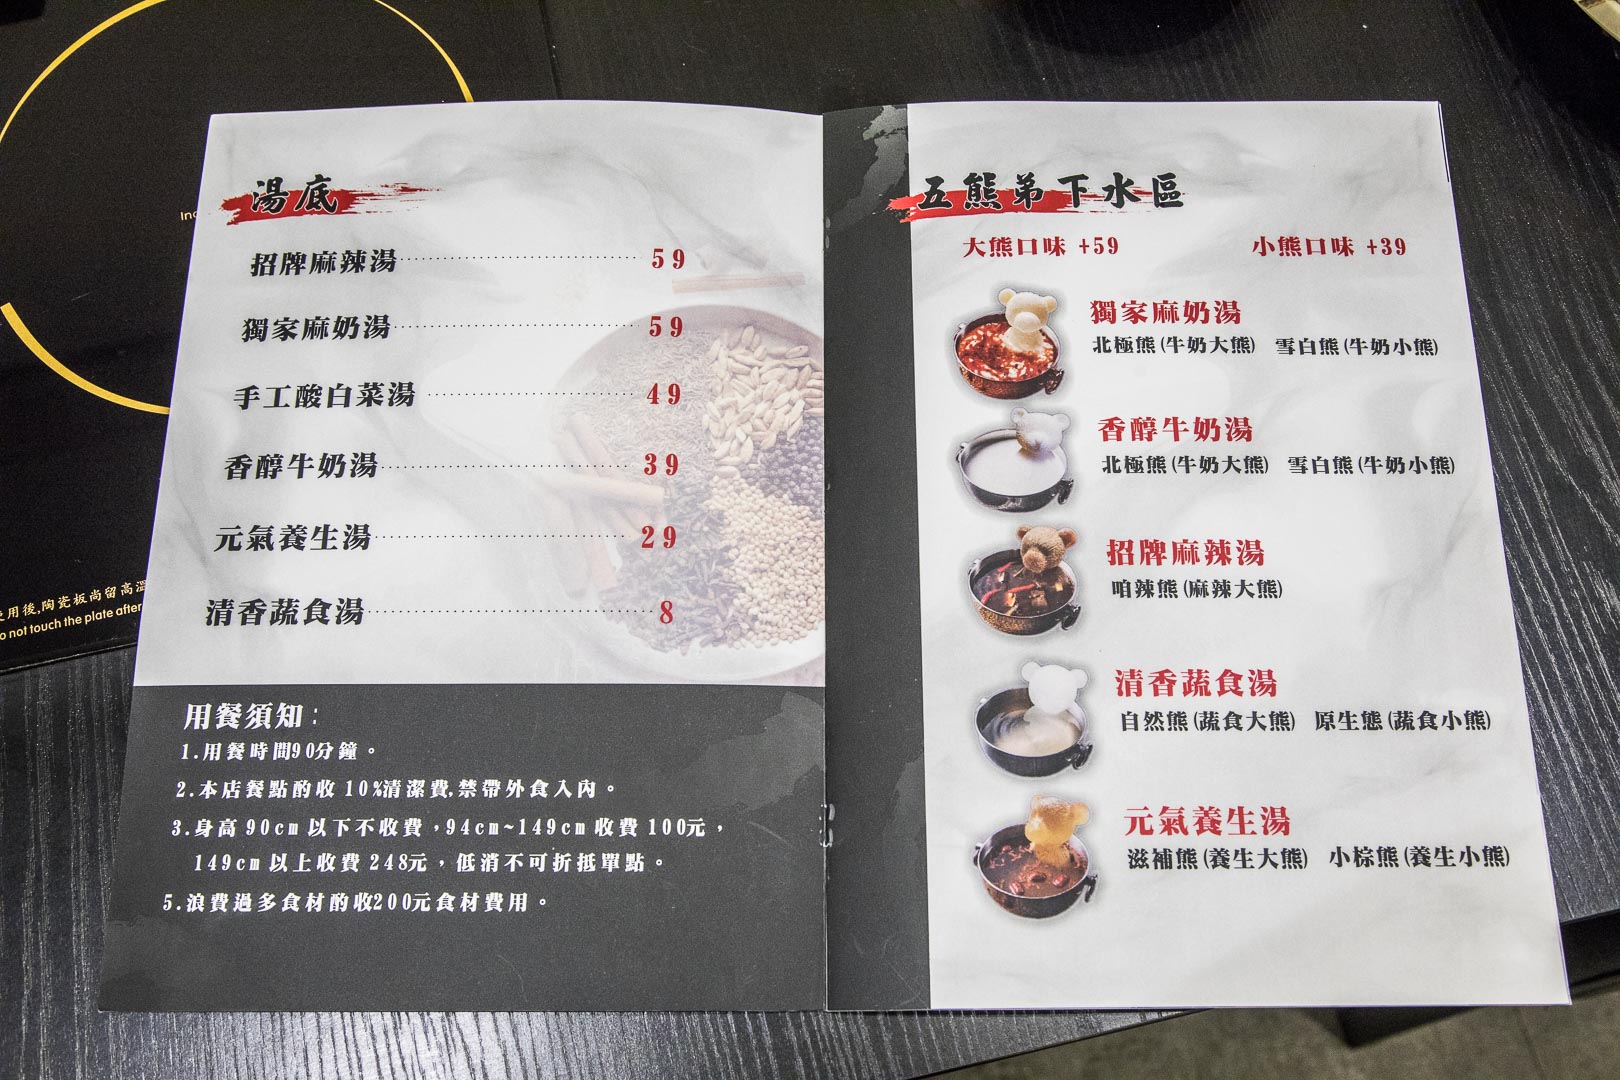 湯底
招牌麻辣湯 59
獨家麻奶湯 59
手工酸白菜湯 49
香醇牛奶湯 39
元氣養生湯 29
清香蔬食湯 8
用餐須知:
1.用餐時間90分鐘。
2.本店餐點酌收10%清潔費,禁帶外食入內。
3.身高90cm以下不收費,94cm~149cm收費100元,
149cm以上收費248元,低消不可折抵單點。
5.浪費過多食材酌收200元食材費用。
五熊弟下水區
大熊口味 +59 小熊口味 +39
獨家麻奶湯
北極熊(牛奶大熊) 雪白熊(牛奶小熊)
香醇牛奶湯
北極熊(牛奶大熊) 雪白熊(牛奶小熊)
招牌麻辣湯
咱辣熊(麻辣大熊)
清香蔬食湯
自然熊(蔬食大熊) 原生態(蔬食小熊)
元氣養生湯
滋補熊(養生大熊) 小棕熊(養生小熊)
用後,陶瓷板尚留高溫
not touch the plate after